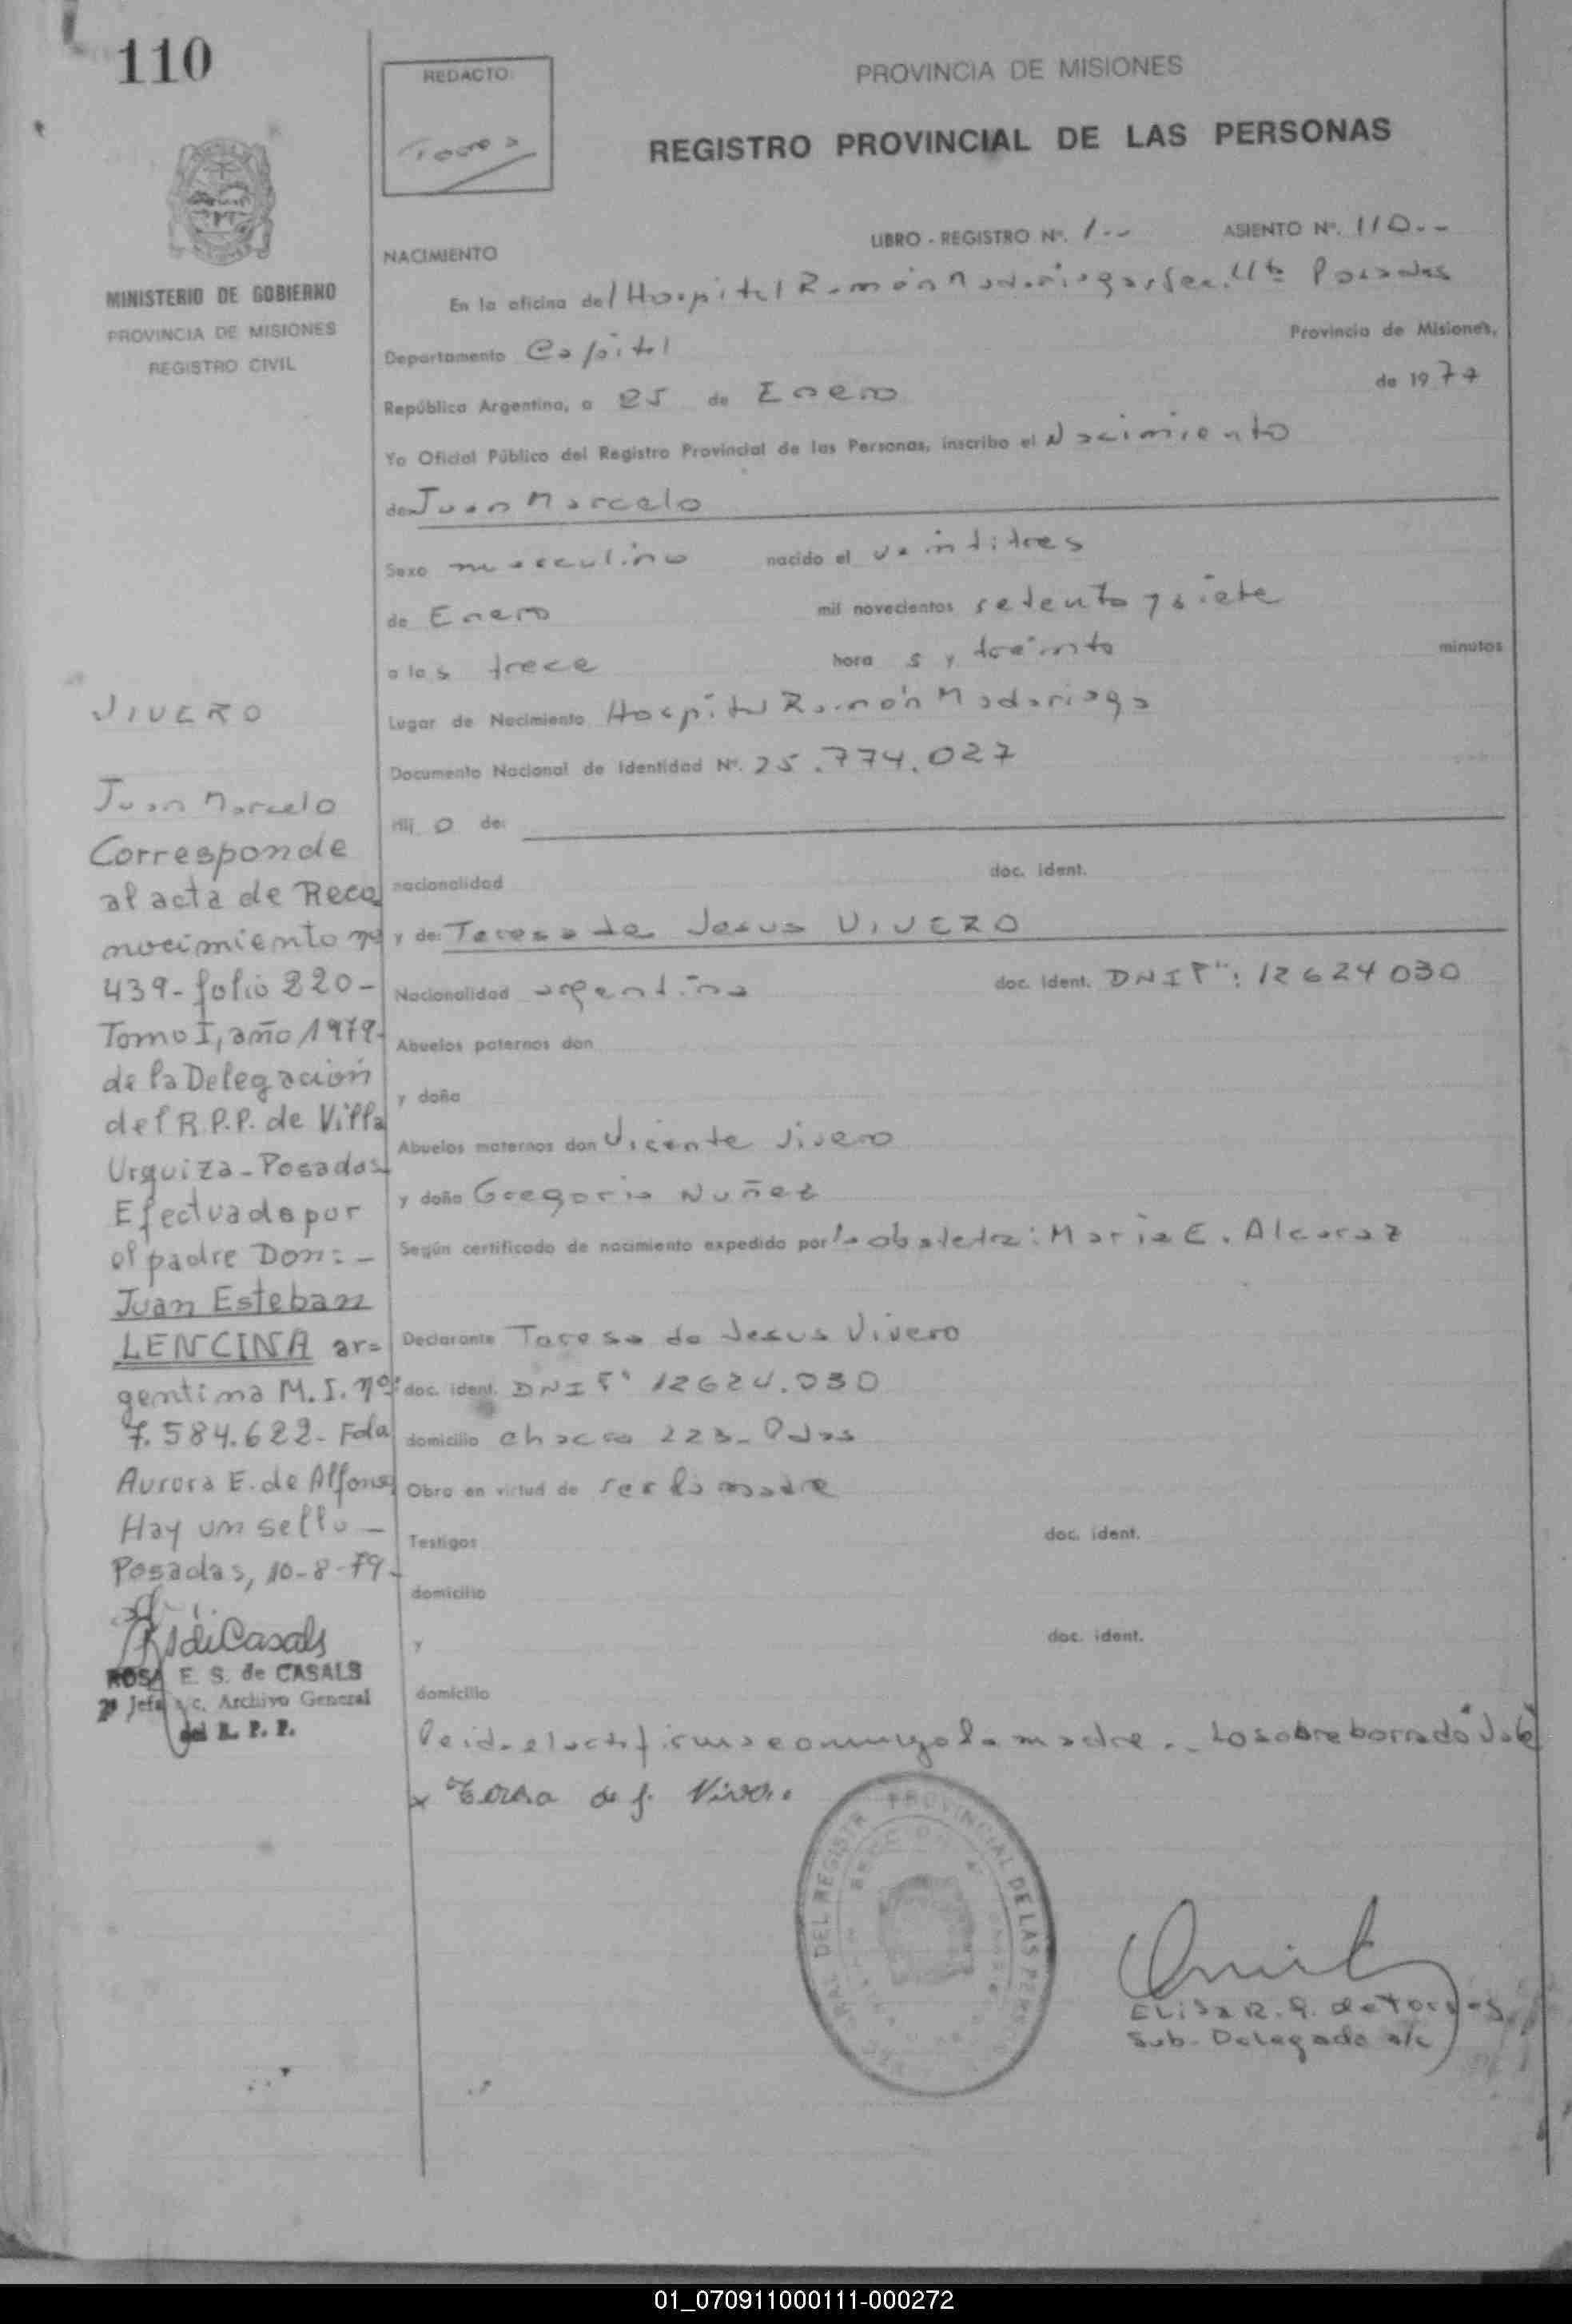 110
REDACTO:
Torres
PROVINCIA DE MISIONES
REGISTRO PROVINCIAL DE LAS PERSONAS
MINISTERIO DE GOBIERNO
PROVINCIA DE MISIONES
REGISTRO CIVIL
LIBRO - REGISTRO Nº. 1-- ASIENTO Nº. 110--
NACIMIENTO
En la oficina del Hospital Ramón Madariaga, Sec. 4ta Posadas
Departamento Capital Provincia de Misiones,
República Argentina, a 25 de Enero de 1977
Yo Oficial Público del Registro Provincial de las Personas, inscribo el Nacimiento
de Juan Marcelo
Sexo masculino nacido el veintitres
de Enero mil novecientos setenta y siete
a las trece hora s y treinta minutos
Lugar de Nacimiento Hospital Ramón Madariaga
Documento Nacional de Identidad Nº. 25.774.027
Hij o de:
nacionalidad doc. ident.
y de: Teresa de Jesus VIVERO
Nacionalidad argentina doc. ident. DNI F": 12624030
Abuelos paternos don
y doña
Abuelos maternos don Vicente Vivero
y doña Gregoria Nuñez
Según certificado de nacimiento expedido por la obstetra: Maria E. Alcaraz
Declarante Teresa de Jesus Vivero
doc. ident. DNI F" 12624.030
domicilio chacra 223- Pdas
Obra en virtud de ser la madre
Testigos doc. ident.
domicilio
y doc. ident.
domicilio
Leida el acta firma conmigo la madre.- Lo sobreborrado "Vale
x Teresa de J. Vivero
Elisa R. G. de Torres
Sub-Delegada a/c
VIVERO
Juan Marcelo
Corresponde
al acta de Reco
nocimiento nº
439-folio 220-
Tomo I, año 1979-
de la Delegación
del R.P.P. de Villa
Urquiza-Posadas
Efectuado por
el padre Don:-
Juan Esteban
LENCINA ar=
gentina M.I. nº:
7.584.622- Fda
Aurora E. de Alfonso
Hay un sello-
Posadas, 10-8-79-
ROSA E. S. de CASALS
Jefa a/c. Archivo General
del R. P. P.
01_070911000111-000272